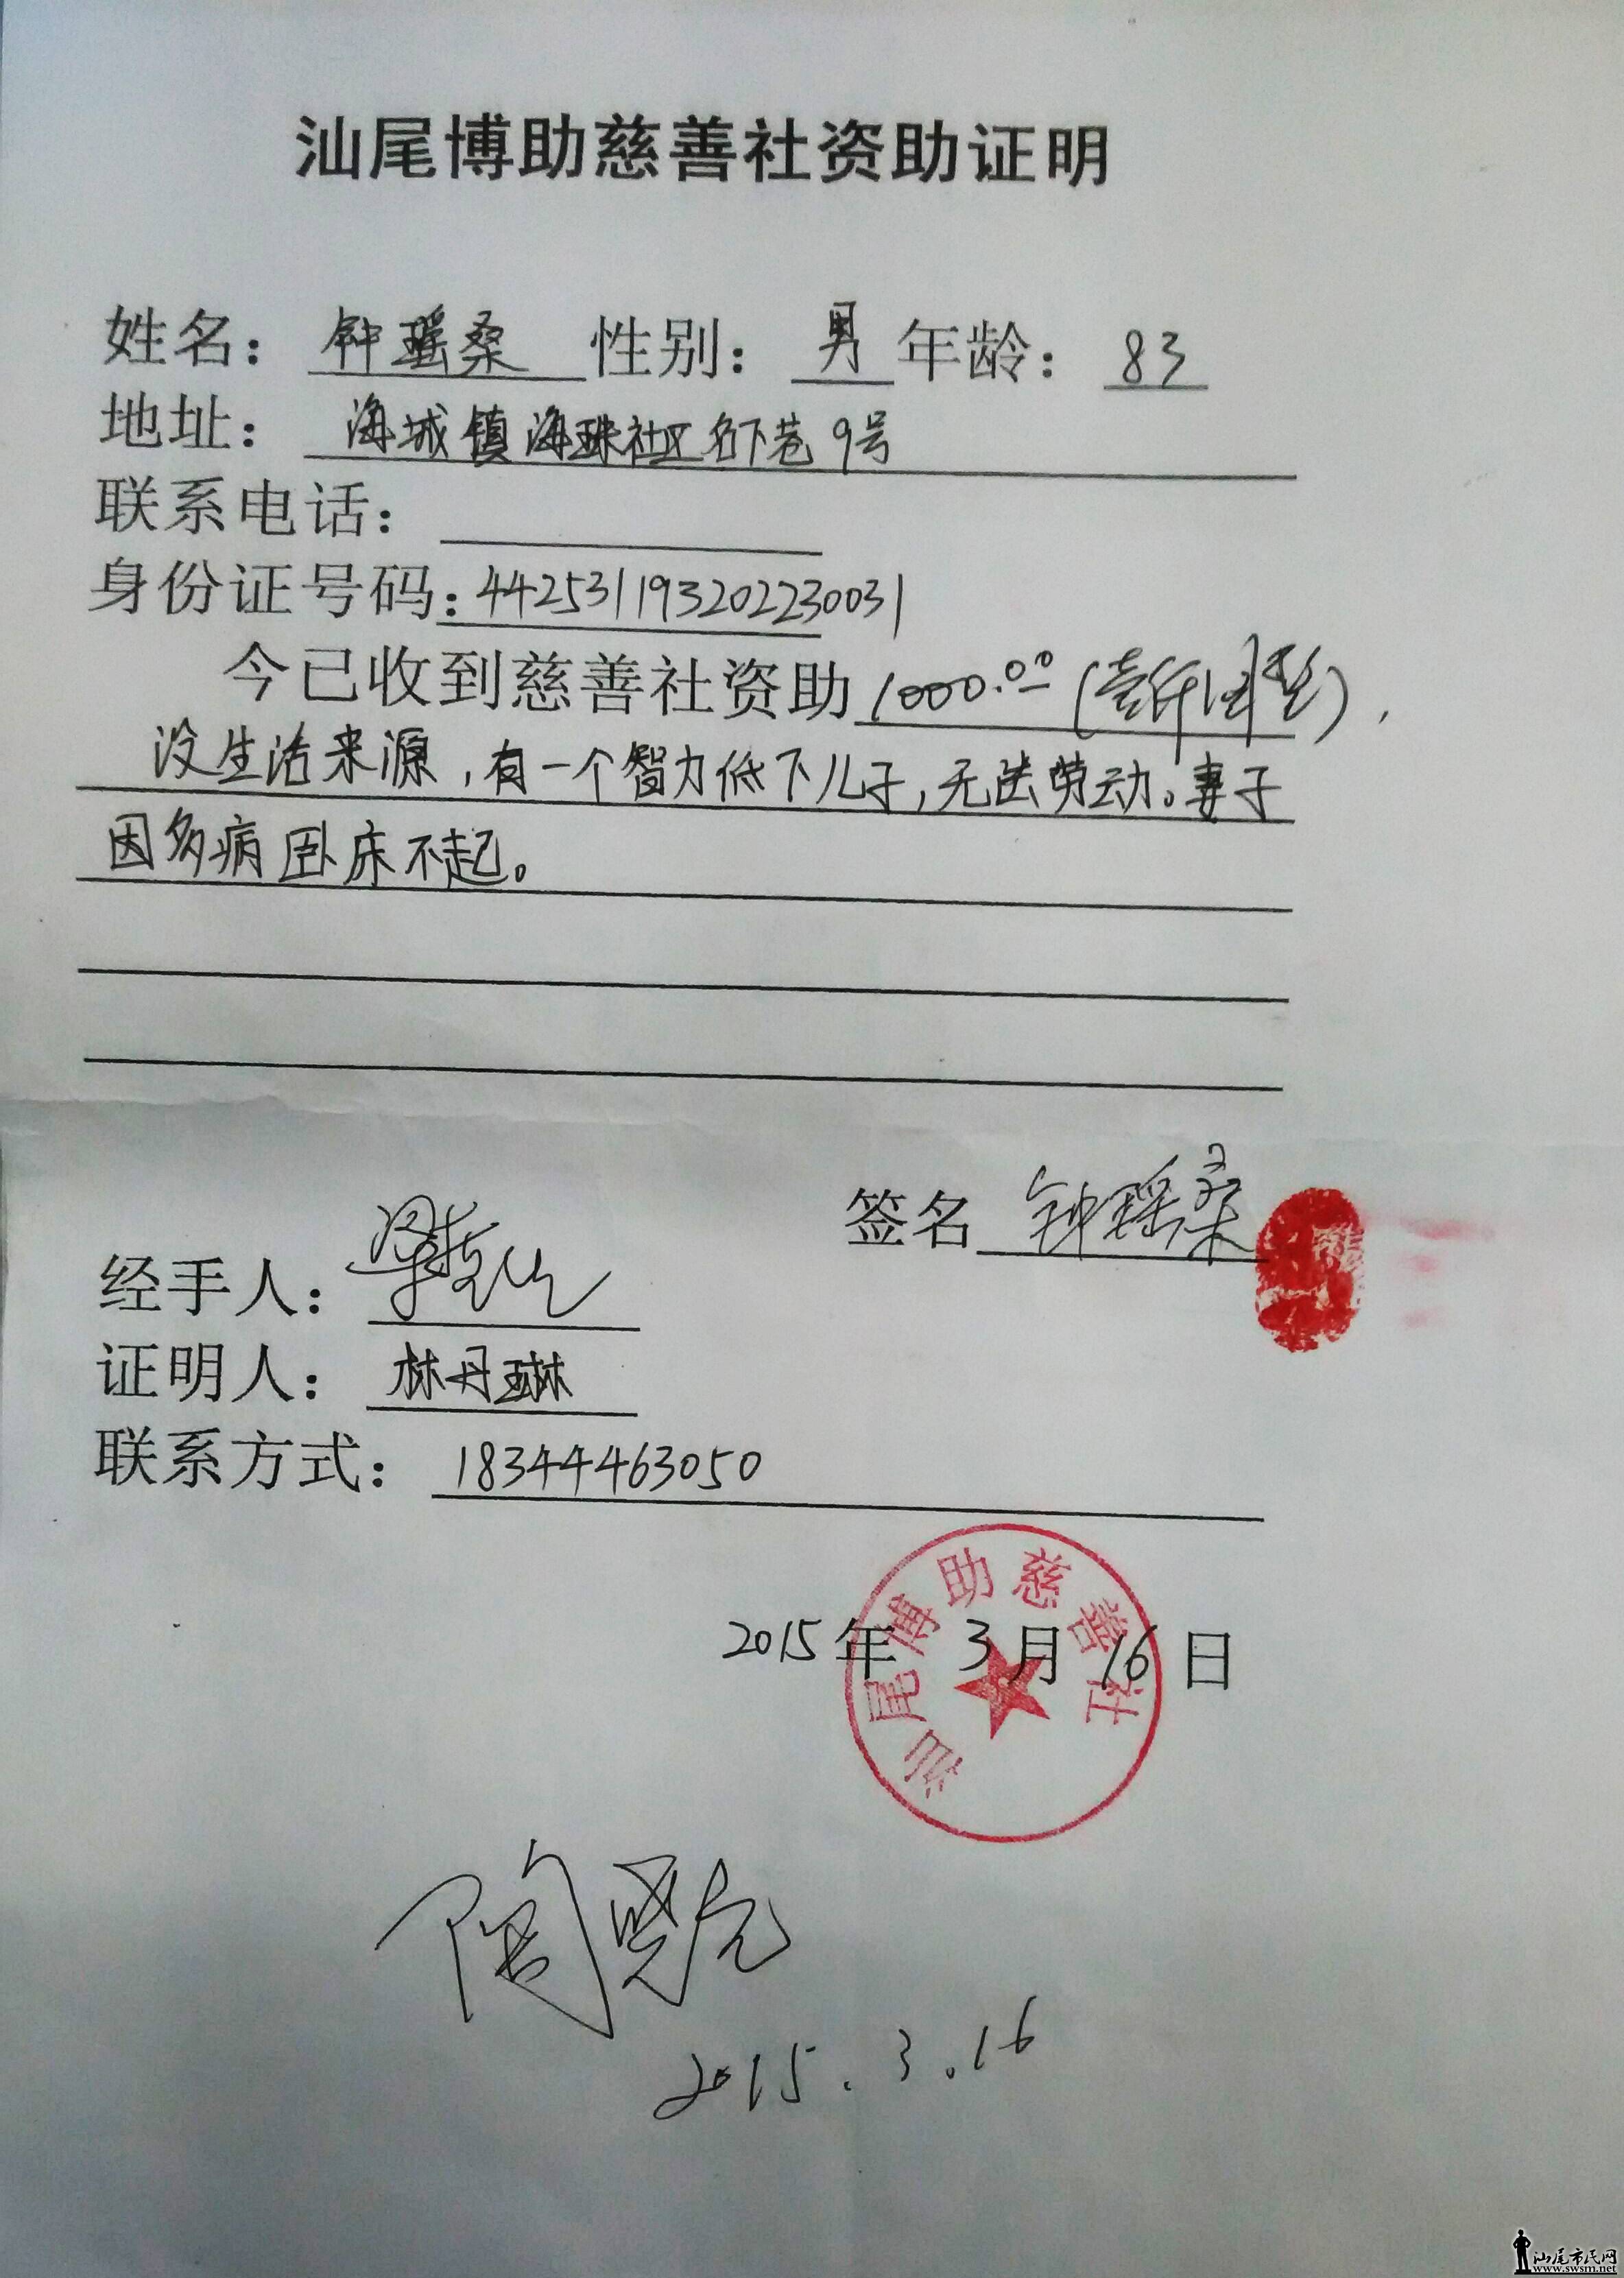 汕尾博助慈善社资助证明
姓名：钟瑶桑 性别：男 年龄：83
地址：海城镇海珠社区名下巷9号
联系电话：
身份证号码：442531193202230031
今已收到慈善社资助1000.00（壹仟圆整），
没生活来源，有一个智力低下儿子，无法劳动。妻子
因多病卧床不起。
签名 钟瑶桑
经手人：
证明人：林丹琳
联系方式：18344463050
2015年 3月 16日
汕尾博助慈善社
2015.3.16
汕尾市民网
www.swsm.net